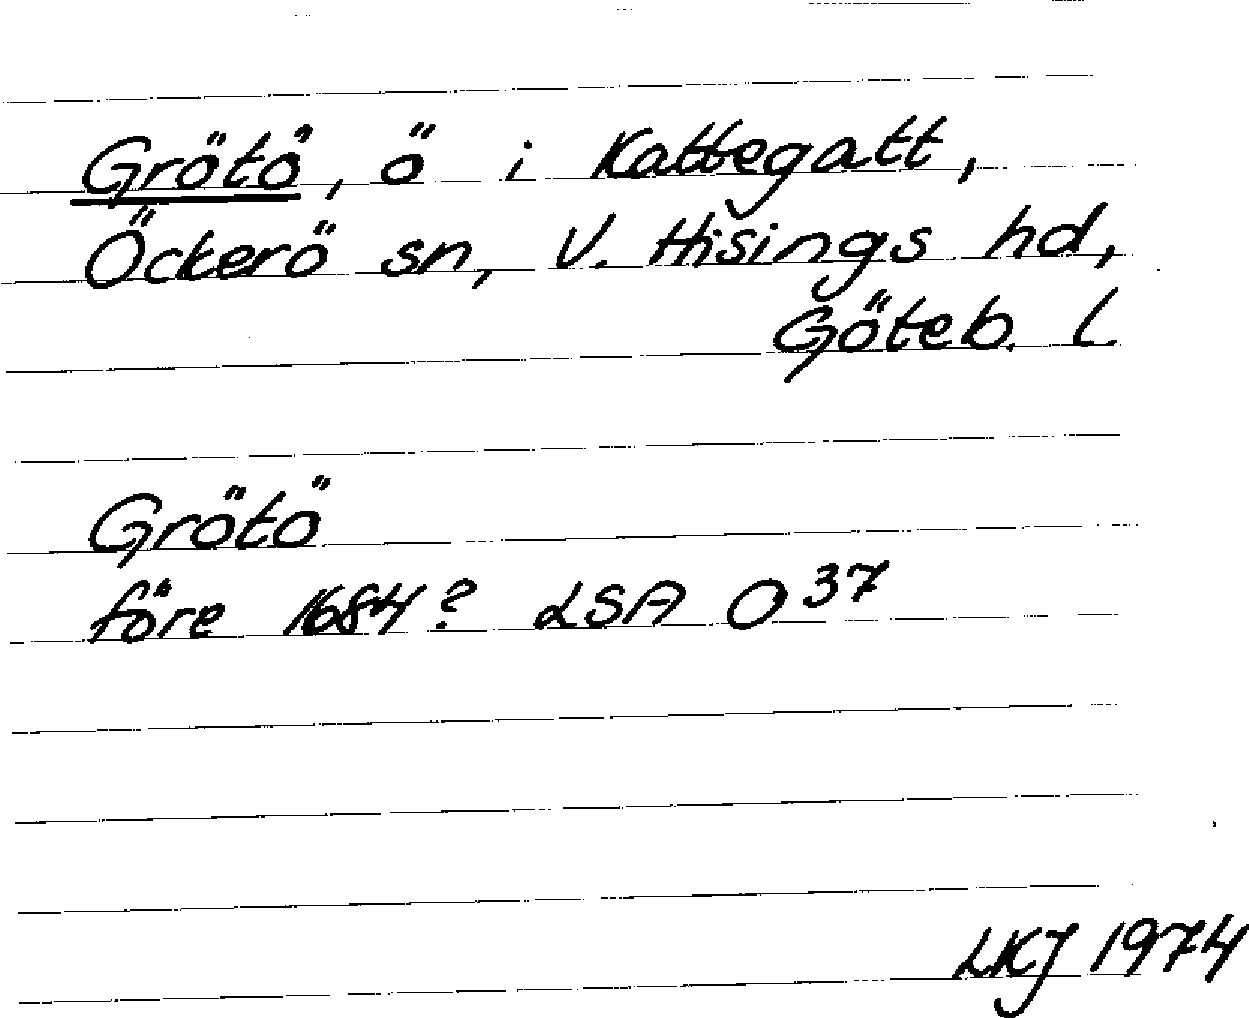 Grötö, ö i Kattegatt,
Öckerö sn, V. Hisings hd,
Göteb. l.
Grötö
före 1684? LSA O 37
LKJ 1974